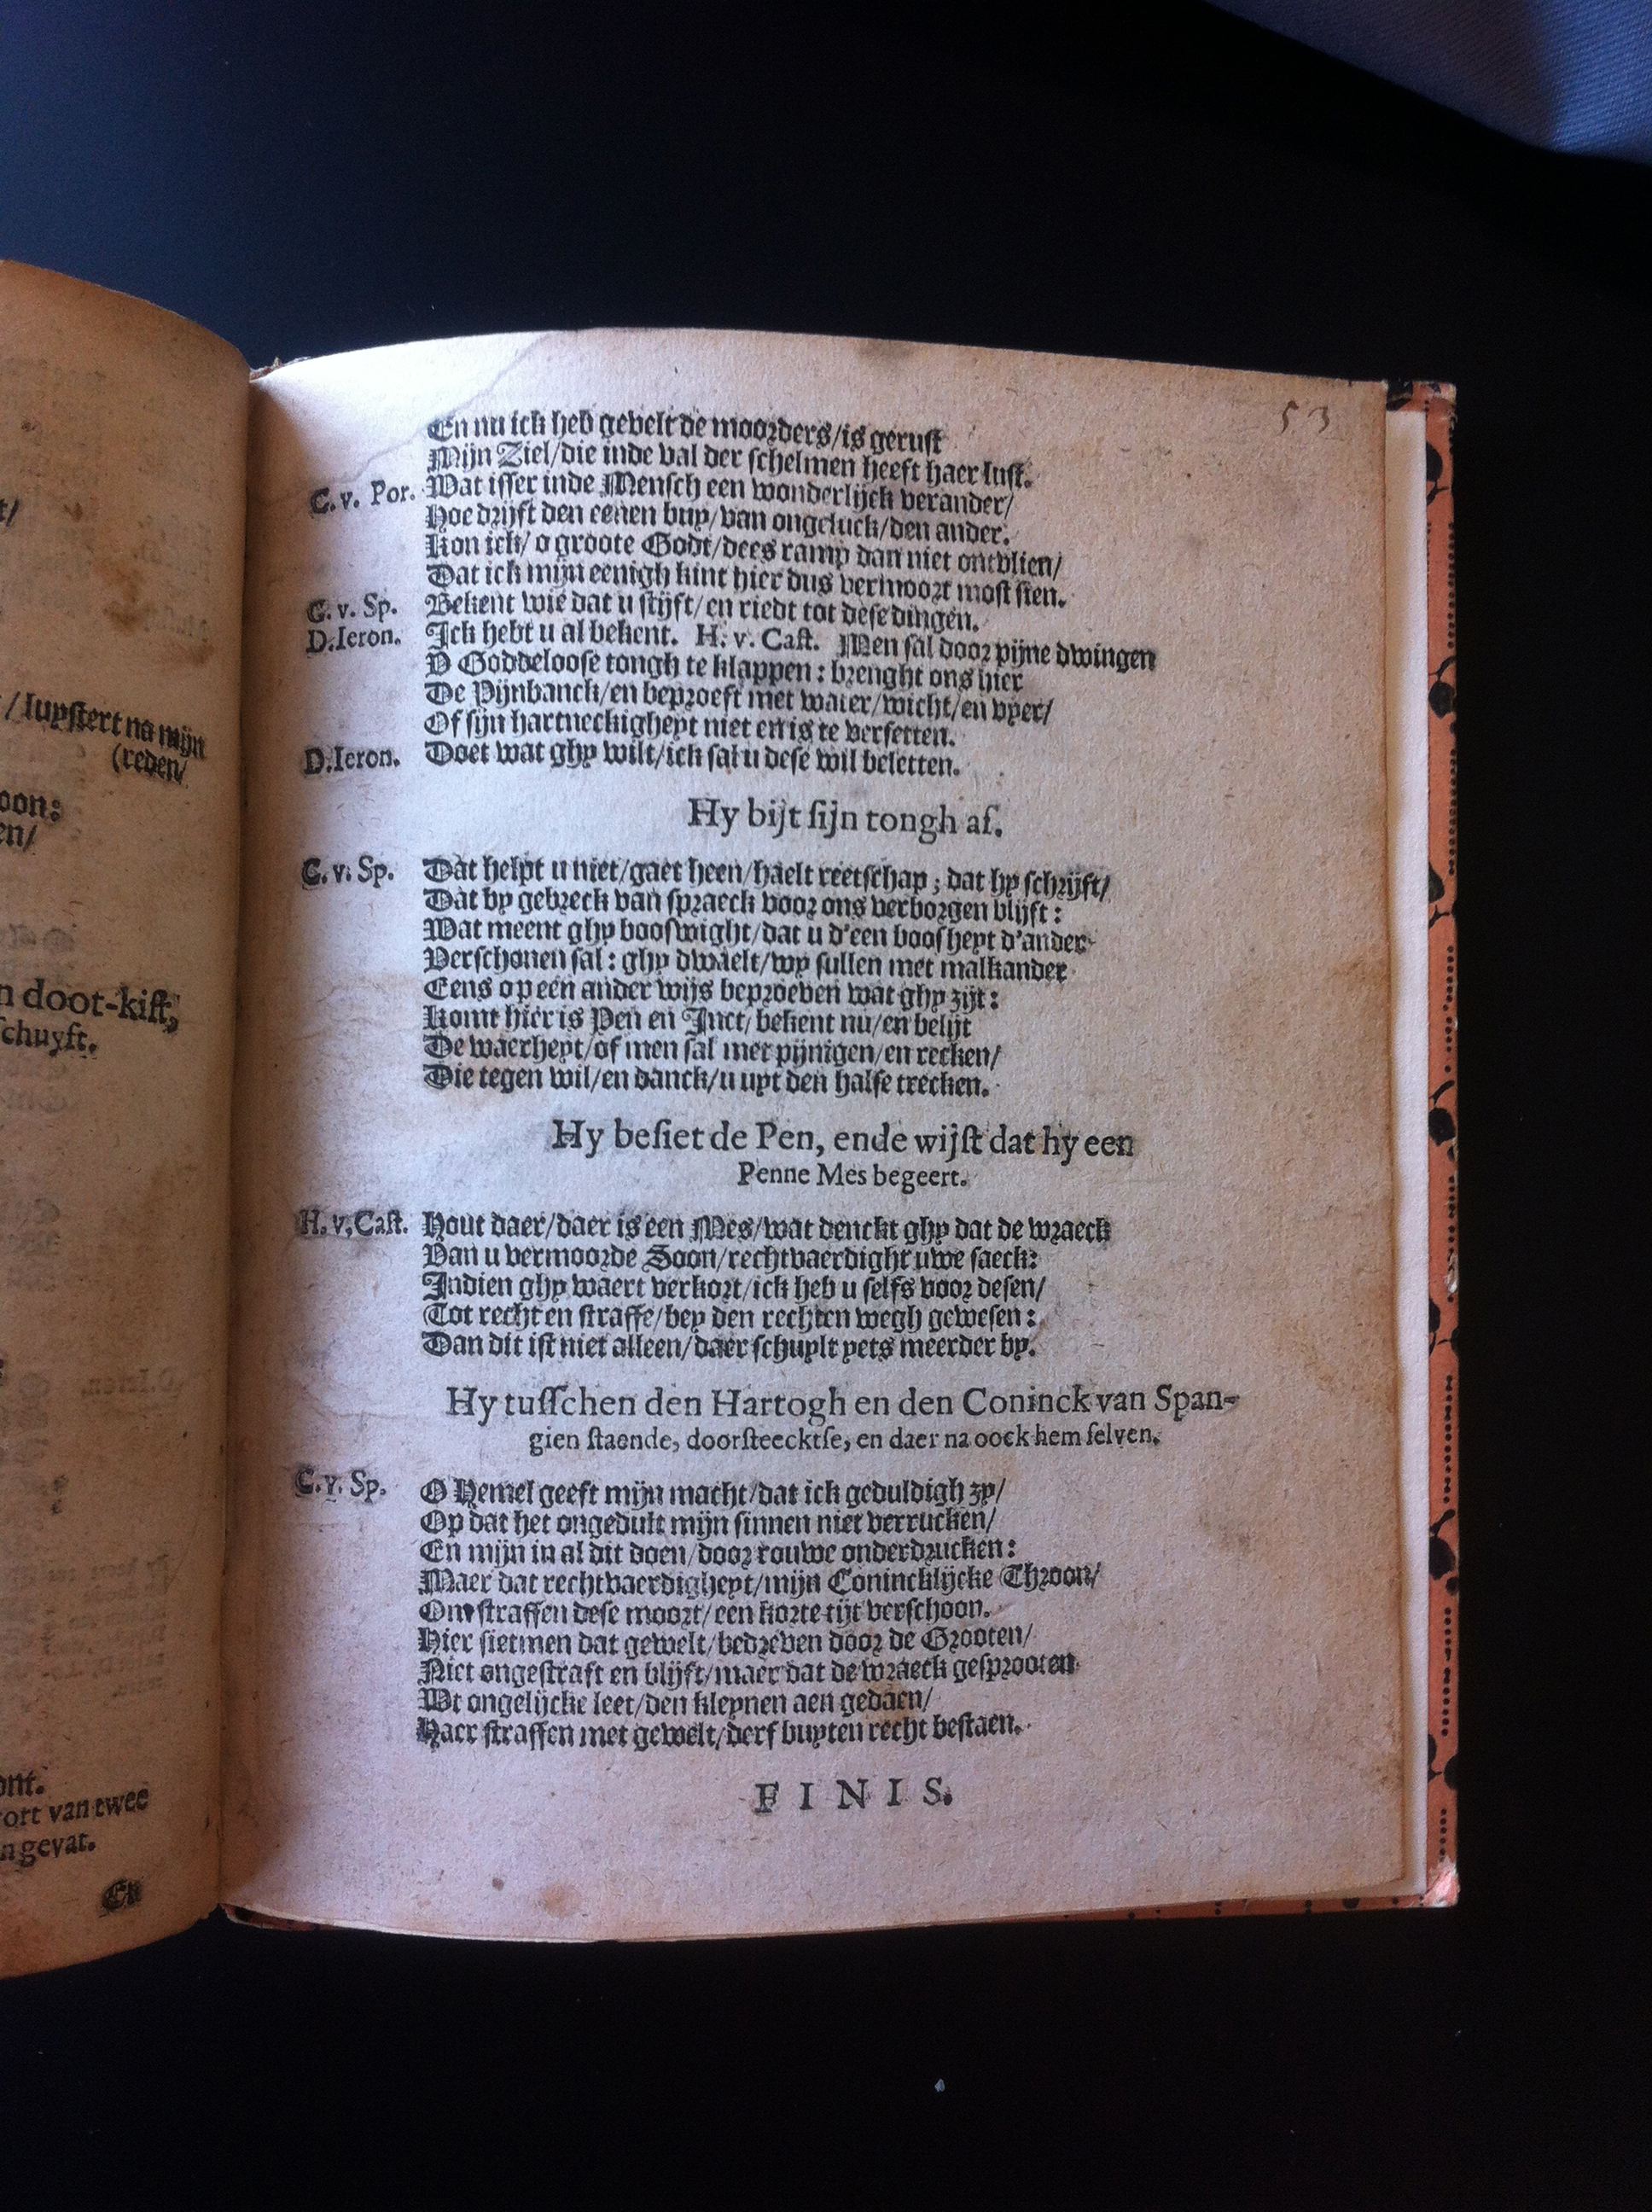 t/
/ luystert na mijn
(reden/
oon:
en/
n doot-kist,
schuyft.
ont.
ort van twee
n gevat.
En
53
En nu ick heb gevelt de moorders/is gerust
Mijn Ziel/die inde val der schelmen heeft haer lust.
C. v. Por. Wat isser inde Mensch een wonderlijck verander/
Hoe drijft den eenen buy/van ongeluck/den ander.
Kon ick/o groote Godt/dees ramp dan niet ontvlien/
Dat ick mijn eenigh kint hier dus vermoort most sien.
C. v. Sp. Bekent wie dat u stijft/en riedt tot dese dingen.
D. Ieron. Ick hebt u al bekent. H. v. Cast. Men sal door pijne dwingen
D Goddeloose tongh te klappen: brenght ons hier
De Pijnbanck/en beproeft met water/wicht/en vyer/
Of sijn hartneckigheyt niet en is te versetten.
D. Ieron. Doet wat ghy wilt/ick sal u dese wil beletten.
Hy bijt sijn tongh af.
C. v. Sp. Dat helpt u niet/gaet heen/haelt reetschap; dat hy schrijft/
Dat by gebreck van spraeck voor ons verborgen blijft:
Wat meent ghy booswight/dat u d'een boosheyt d'ander
Verschonen sal: ghy dwaelt/wy sullen met malkander
Eens op een ander wijs beproeven wat ghy zijt:
Komt hier is Pen en Inct/bekent nu/en belijt
De waerheyt/of men sal met pijnigen/en recken/
Die tegen wil/en danck/u uyt den halse trecken.
Hy besiet de Pen, ende wijst dat hy een
Penne Mes begeert.
H. v. Cast. Hout daer/daer is een Mes/wat denckt ghy dat de wraeck
Van u vermoorde Soon/rechtvaerdight uwe saeck:
Indien ghy waert verkort/ick heb u selfs voor desen/
Tot recht en straffe/bey den rechten wegh gewesen:
Dan dit ist niet alleen/daer schuylt yets meerder by.
Hy tusschen den Hartogh en den Coninck van Span-
gien staende, doorsteecktse, en daer na oock hem selven.
C. v. Sp. O Hemel geeft mijn macht/dat ick geduldigh zy/
Op dat het ongedult mijn sinnen niet verrucken/
En mijn in al dit doen/door rouwe onderdrucken:
Maer dat rechtvaerdigheyt/mijn Conincklijcke Throon/
Om straffen dese moort/een korte tijt verschoon.
Hier sietmen dat gewelt/bedreven door de Grooten/
Niet ongestraft en blijft/maer dat de wraeck gesprooten
Wt ongelijcke leet/den kleynen aen gedaen/
Haer straffen met gewelt/derf buyten recht bestaen.
FINIS.